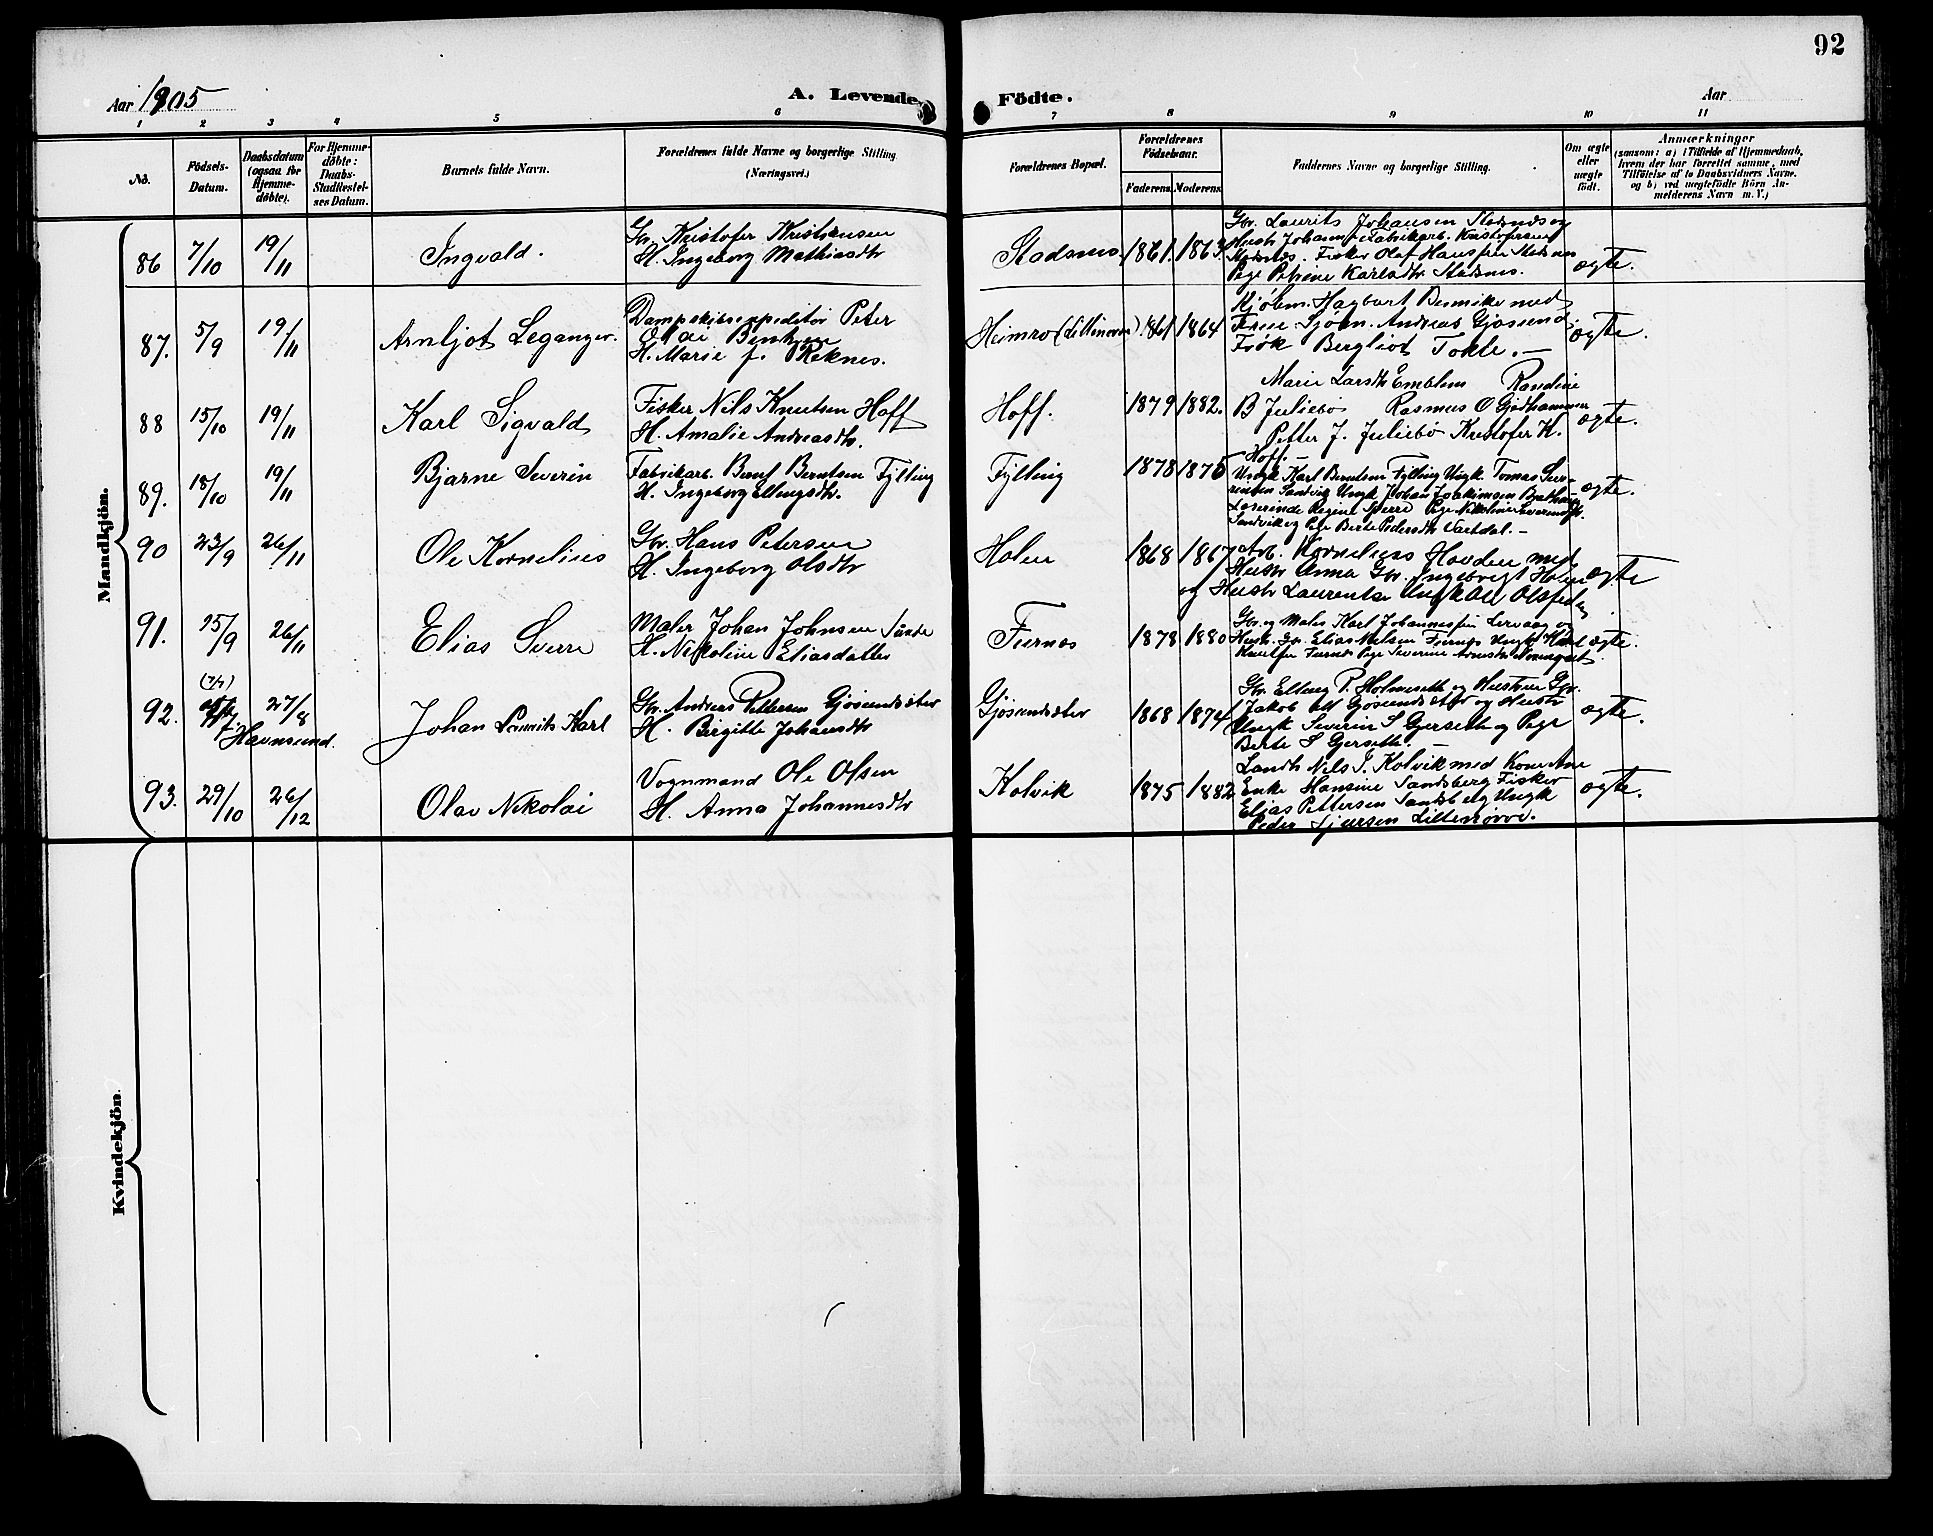 92
Aar 1905
A. Levende
Födte.
Aar
1 2 3 4 5 6 7 8 9 10 11
No.
Födsels-Datum.
Daabsdatum (ogsaa for Hjemme-döbte).
For Hjemme-döbte: Daabs-Stadfæstel-ses Datum.
Barnets fulde Navn.
Forældrenes fulde Navne og borgerlige Stilling.
(Næringsvei.)
Forældrenes Bopæl.
Forældrenes Födselsaar.
Faderens. Moderens.
Faddernes Navne og borgerlige Stilling.
Om ægte eller uægte födt.
Anmærkninger
(saasom: a) i Tilfælde af Hjemmedaab, hvem der har forrettet samme, med Tilföielse af to Daabsvidners Navne, og b) ved uægtefödte Börn An-melderens Navn m. V.)
Mandkjön.
86 7/10 19/11 Ingvald. Gbr. Kristofer Kristiansen
H. Ingeborg Mathiasdtr
Stadsnes 1861. 1863 Gbr. Laurits Johansen Stadsnes og
Hustr Johanna Fabrikarb. Kristofersen
Fisker Olaf Hansen Stadsnes
Pige Petrine Karlsdtr Stadsnes.
ægte.
87. 5/9 19/11 Arnljot Leganger. Dampskibsexpeditør Peter
H. Marie f. Reknes.
Heimro 1861 1864 Kjøbm. Hagbart
Andreas Gjøsund.
Frøk Bergliot Tokle. —
ægte.
88 15/10 19/11 Karl Sigvald Fisker Nils Knutsen Hoff
H. Amalie Andreasdtr.
Hoff. 1879 1882. Marie Larsdtr Emblem Randine
B Juliebø Rasmus O Gjødhammer
Petter J. Juliebø Kristofer K.
Hoff. —
ægte.
89. 18/10 19/11 Bjarne Severin Fabrikarb. Bernt Berntsen Fylling
H. Ingeborg Ellingsdtr.
Fylling 1878 1875 Ungk Karl Berntsen Fylling Ungk Tomas
Sandvik Ungk Johan Joakimsen
Lærerinde Regine Sperre Pige
Sandvik og Pige Berte Pedersdtr Vartdal. —
ægte.
90 23/9 26/11 Ole Kornelius Gbr. Hans Petersen
H. Ingeborg Olsdtr
Holen 1868 1867 Arb. Kornelius Hovden med
Hustr Anna Gbr. Ingebrigt Holen
og Hustr Laurentse Ungk Ole
ægte
91. 15/9 26/11 Elias Sverre Maler Johan Johnsen Sunde
H. Nikoline Eliasdatter
Furnes 1878 1880 Gbr. og Maler Karl Johannessen Lervaag og
Hustr. Gbr. Elias Nielsen Furnes Ungk Karl
Knutsen Furnes Pige Severine
ægte.
92. Havnsund. 27/8 Johan Laurits Karl Gbr. Andreas Pettersen Gjøsundsæter
H. Birgitte Johansdtr
Gjøsundsæter 1868 1874 Gbr. Elling P. Holmeseth og Hustru Gbr.
Jakob M Gjøsundsæter og Hustr
Ungk Severin S Gjerseth og Pige
Berte S Gjerseth. —
ægte.
93. 29/10 26/12 Olav Nikolai Vognmand Ole Olsen
H. Anna Johannesdtr
Kolvik 1875 1882 Landh Nils I. Kolvik med Kone Ane
Enke Hansine Sandsberg Fisker
Elias Pettersen Sandsberg Ungk
Peder Sjursen Lillenørve.
ægte.
Kvindekjön.